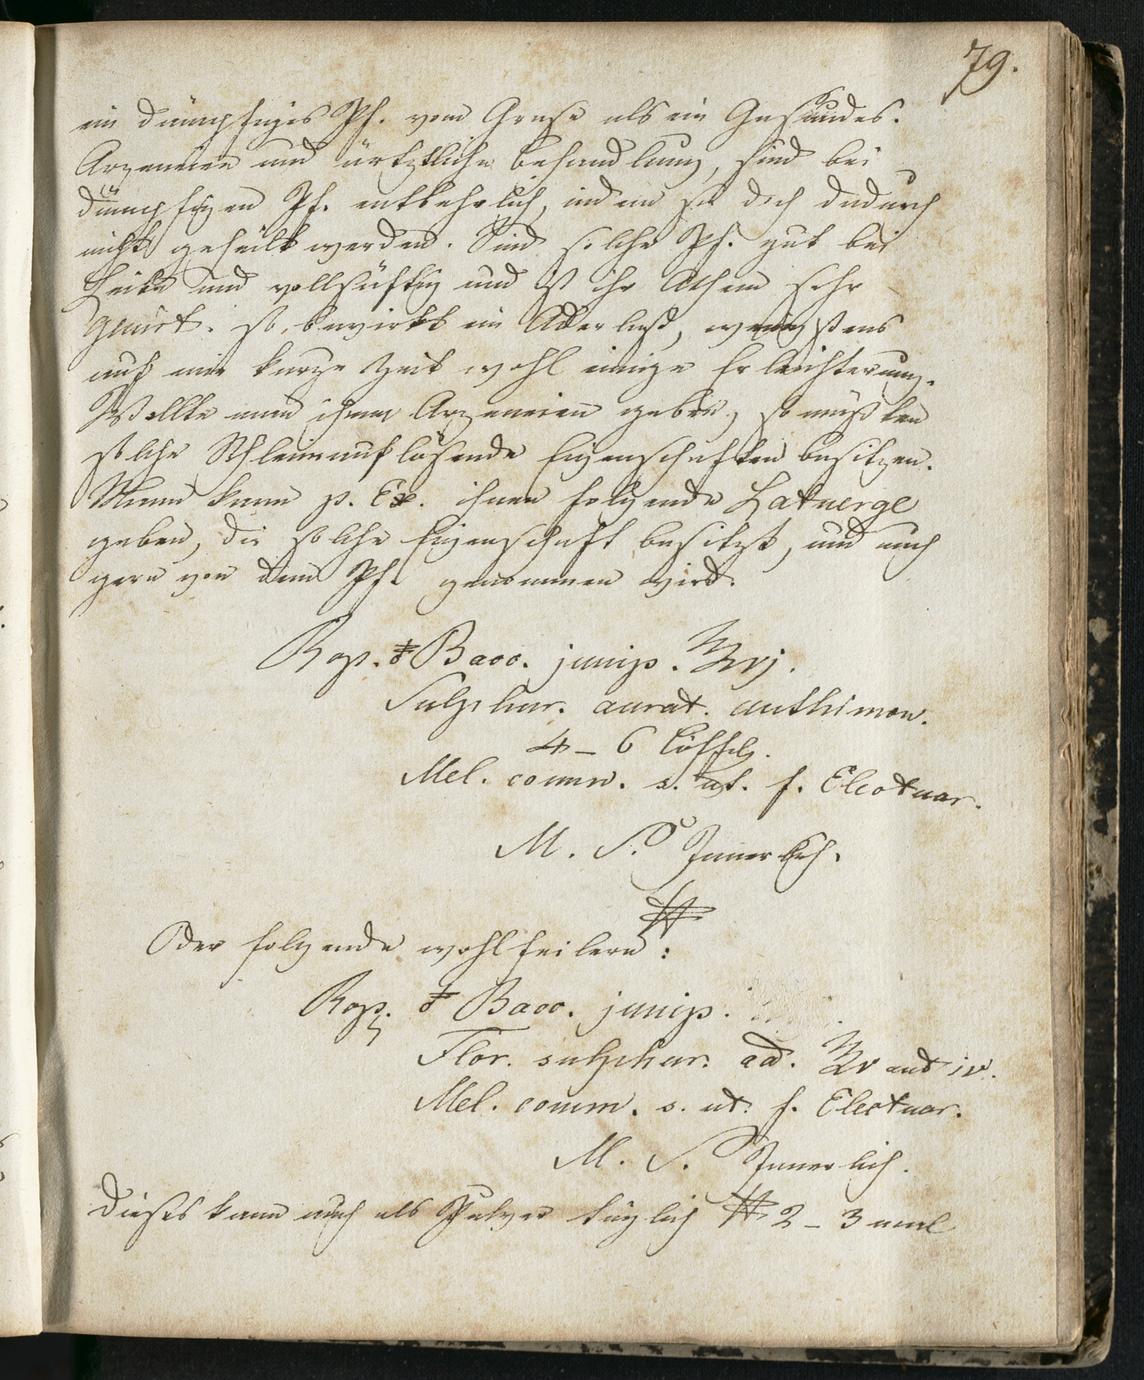 79.
ein dämpfiges Pf. vom Grase als ein Gesundes.
Arzeneien und ärtztliche behandlung, sind bei
dämpfigen Pf. entbehrlich, indem sie doch dadurch
nicht geheilt werden. Sind solche Pf. gut bei
Leibe und vollsäftig und ist ihr Athem sehr
genirt. so, bewirkt ein Aderlaß, wenigstens
auf eine kurze Zeit wohl einige Erleichterung.
Wollte man ihnen Arzeneien geben, so müßten
solche Schleimauflösende Eigenschaften besitzen.
Mann kann z. Ex. ihnen folgende Latuerge
geben, die solche Eigenschaft besitzt, und auch
gern von dem Pf. genommen wird.
Bacc. junip.
Sulphur. aurat. anthimon.
4 – 6 Löffel.
Mel. comm. s. ut. f. Electuar.
M. S. Innerlich.
Oder folgende wohlfeilere:
Bacc. junip.
Flor. sulphur. ad. aut iv.
Mel. comm. s. ut. f. Electuar.
M. S. Innerlich.
Dieses kann auch als Pulver täglich 2 – 3 mal